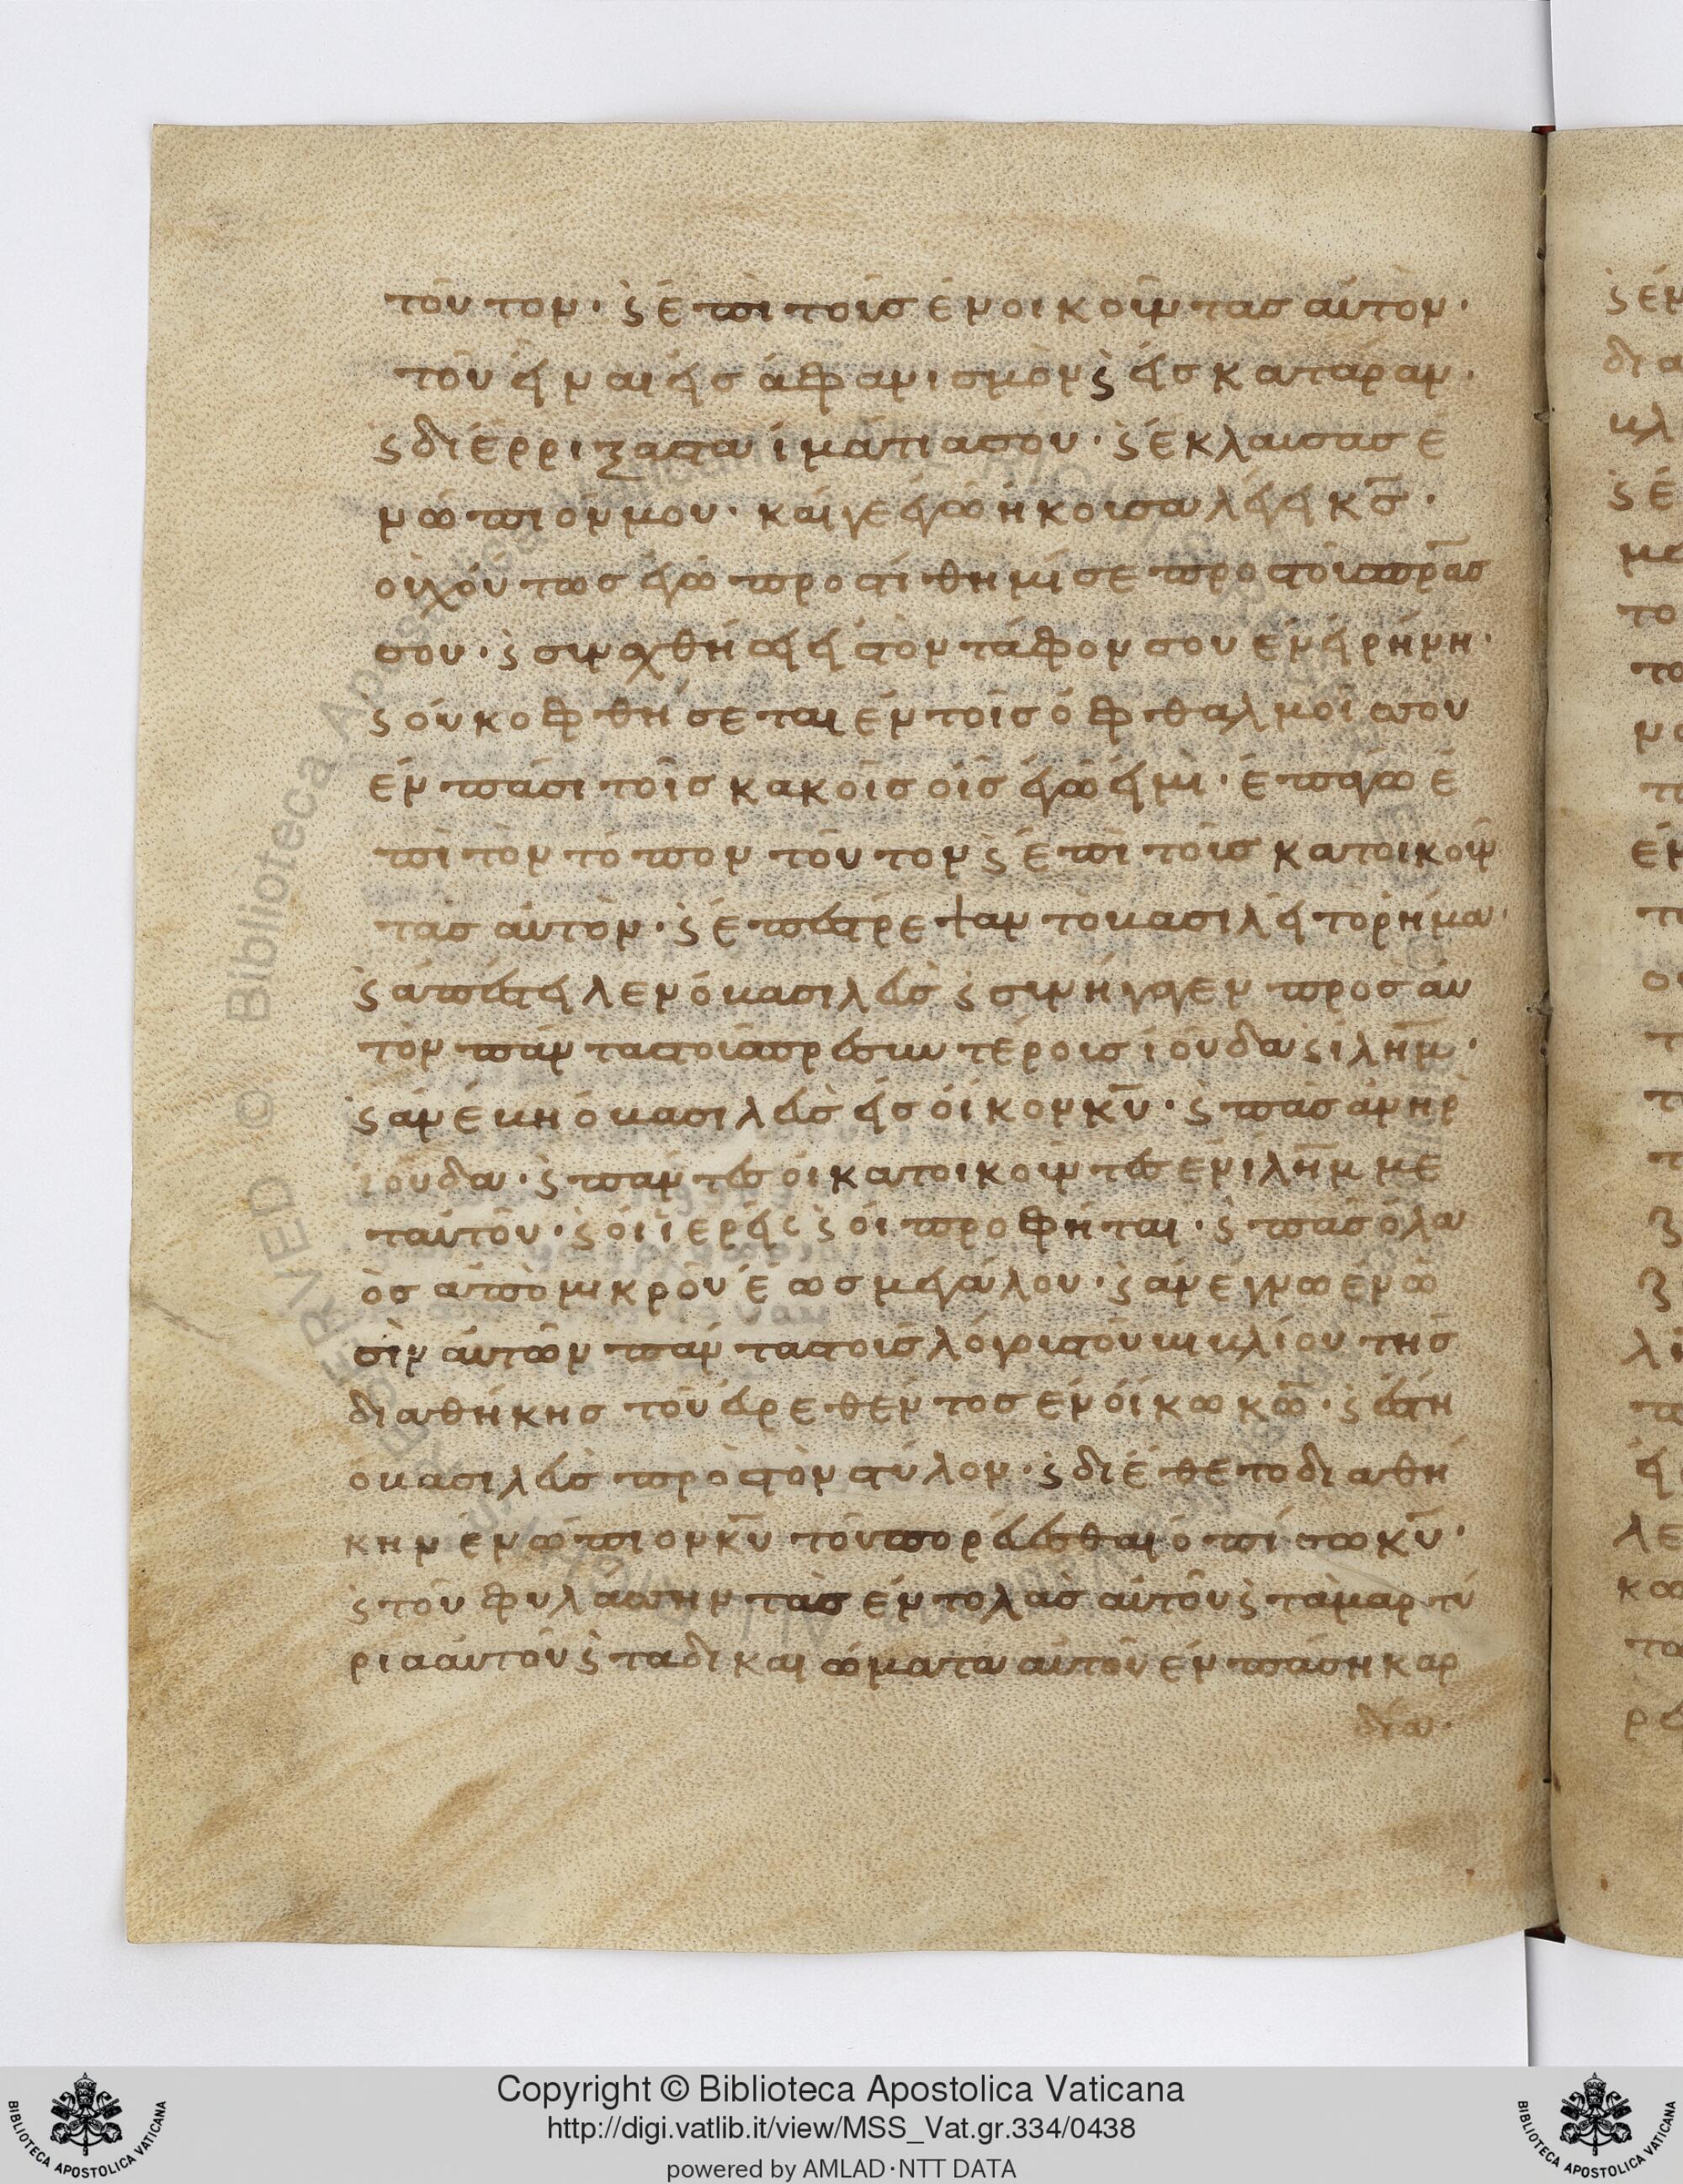 τοῦτον· ϛ ἐπὶ τοὺς ἐνοικοῦντας αὐτὸν·
τοῦ εἶναι εἰς ἀφανισμὸν ϛ εἰς κατάραν·
ϛ διέρρηξας τὰ ἱμάτιά σου· ϛ ἔκλαυσας ἐ
νώπιόν μου· καί γε ἐγὼ ἤκουσα λέγει κ̅ς̅·
οὐχ οὕτως ἐγὼ προστίθημί σε πρὸς τοὺς π̅ρ̅ας
σου· ϛ συναχθήσει εἰς τὸν τάφον σου ἐν εἰρήνη·
ϛ οὐκ ὀφθήσεται ἐν τοῖς ὀφθαλμοῖς σου
ἐν πᾶσι τοῖς κακοῖς οἷς ἐγὼ εἰμὶ· ἐπάγω ἐ
πὶ τὸν τόπον τοῦτον ϛ ἐπὶ τοὺς κατοικοῦν
τας αὐτὸν· ϛ ἐπέστρεψαν τῶ βασιλεῖ τὸ ῥῆμα·
ϛ ἀπέστειλεν ὁ βασιλεὺς ϛ συνήγαγεν πρὸς αὐ
τὸν πάντας τοὺς πρεσβυτέρους ἰούδα ϛ ἰλη̅μ̅·
ϛ ἀνέβη ὁ βασιλεὺς εἰς οἶκον κ̅υ̅· ϛ πᾶς ἀνὴρ
ἰούδα· ϛ πάντες οἱ κατοικοῦντες ἐν ἰλη̅μ̅ με
τ αὐτοῦ· ϛ οἱ ἱερεῖς ϛ οἱ προφῆται· ϛ πᾶς ὁ λα
ὸς ἀπὸ μικροῦ ἕως μεγάλου· ϛ ἀνέγνω ἐν ὠ
σὶν αὐτῶν πάντας τοὺς λόγους τοῦ βιβλίου τῆς
διαθήκης τοῦ εὑρεθέντος ἐν οἴκω κ̅υ̅· ϛ ἔστη
ὁ βασιλεὺς πρὸς τὸν στύλον· ϛ διέθετο διαθή
κην ἐνώπιον κ̅υ̅ τοῦ πορεύεσθαι ὀπίσω κ̅υ̅·
ϛ τοῦ φυλάσσειν τὰς ἐντολὰς αὐτοῦ ϛ τὰ μαρτύ
ρια αὐτοῦ ϛ τὰ δικαιώματα αὐτοῦ ἐν πάση καρ
δία·
Copyright © Biblioteca Apostolica Vaticana
http://digi.vatlib.it/view/MSS_Vat.gr.334/0438
powered by AMLAD·NTT DATA